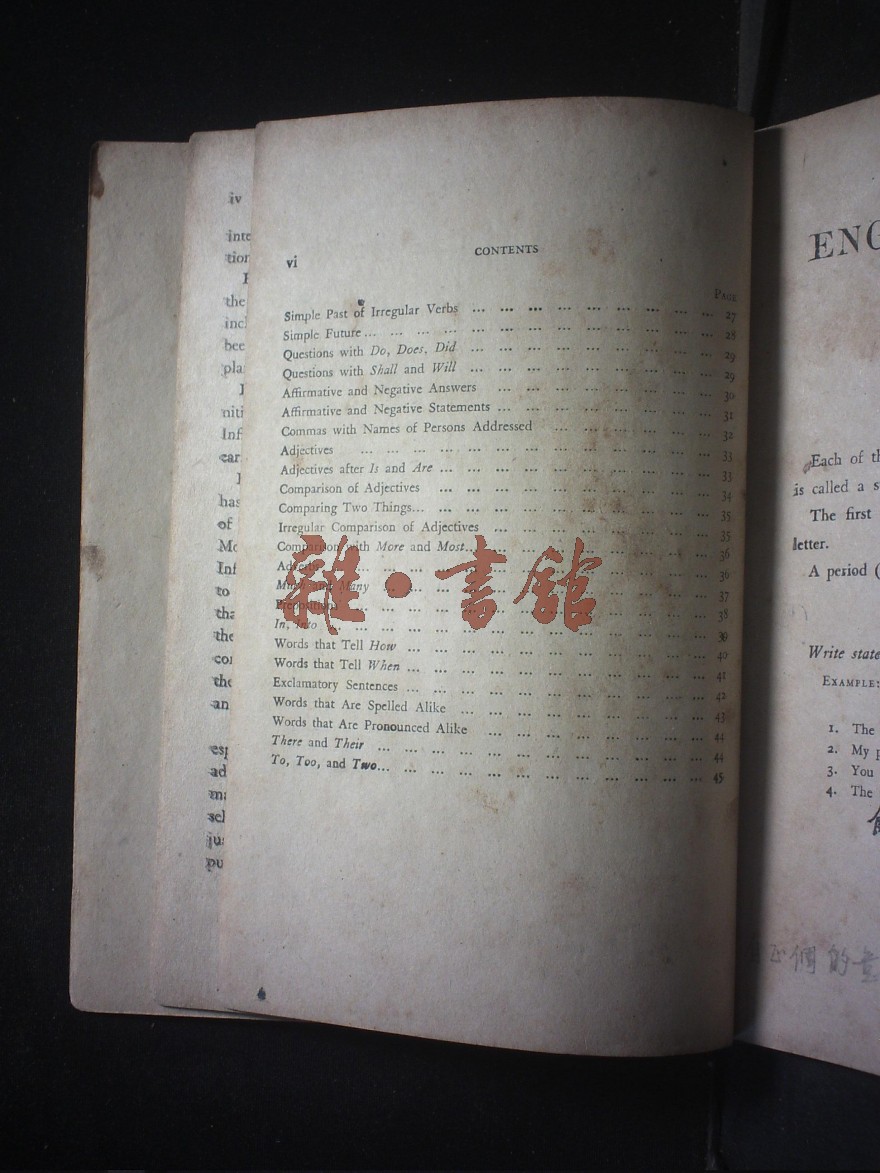 iv
inte
tion
the
incl
bee
pla
niti
Inf
ear
has
of
Mc
Inf
to
tha
the
con
the
an
esp
ad
ma
sel
jus
pu
vi CONTENTS
PAGE
Simple Past of Irregular Verbs ... ... ... ... ... ... ... ... ... 27
Simple Future ... ... ... ... ... ... ... ... ... ... ... ... 28
Questions with Do, Does, Did ... ... ... ... ... ... ... ... ... 29
Questions with Shall and Will ... ... ... ... ... ... ... ... ... 29
Affirmative and Negative Answers ... ... ... ... ... ... ... ... 30
Affirmative and Negative Statements ... ... ... ... ... ... ... ... 31
Commas with Names of Persons Addressed ... ... ... ... ... ... 32
Adjectives ... ... ... ... ... ... ... ... ... ... ... ... 33
Adjectives after Is and Are ... ... ... ... ... ... ... ... ... ... 33
Comparison of Adjectives ... ... ... ... ... ... ... ... ... ... 34
Comparing Two Things... ... ... ... ... ... ... ... ... ... ... 35
Irregular Comparison of Adjectives ... ... ... ... ... ... ... ... 35
Comparison with More and Most... ... ... ... ... ... ... ... ... 36
Adverbs ... ... ... ... ... ... ... ... ... ... ... ... 36
Much and Many ... ... ... ... ... ... ... ... ... ... ... 37
Prepositions ... ... ... ... ... ... ... ... ... ... ... ... 38
In, Into ... ... ... ... ... ... ... ... ... ... ... ... ... 39
Words that Tell How ... ... ... ... ... ... ... ... ... ... ... 40
Words that Tell When ... ... ... ... ... ... ... ... ... ... ... 41
Exclamatory Sentences ... ... ... ... ... ... ... ... ... ... ... 42
Words that are Spelled Alike ... ... ... ... ... ... ... ... ... 43
Words that Are Pronounced Alike ... ... ... ... ... ... ... ... 44
There and Their ... ... ... ... ... ... ... ... ... ... ... ... 44
To, Too, and Two... ... ... ... ... ... ... ... ... ... ... ... 45
雜·書館
ENG
Each of th
is called a s
The first
letter.
A period (
Write state
EXAMPLE:
1. The
2. My p
3. You
4. The
們的